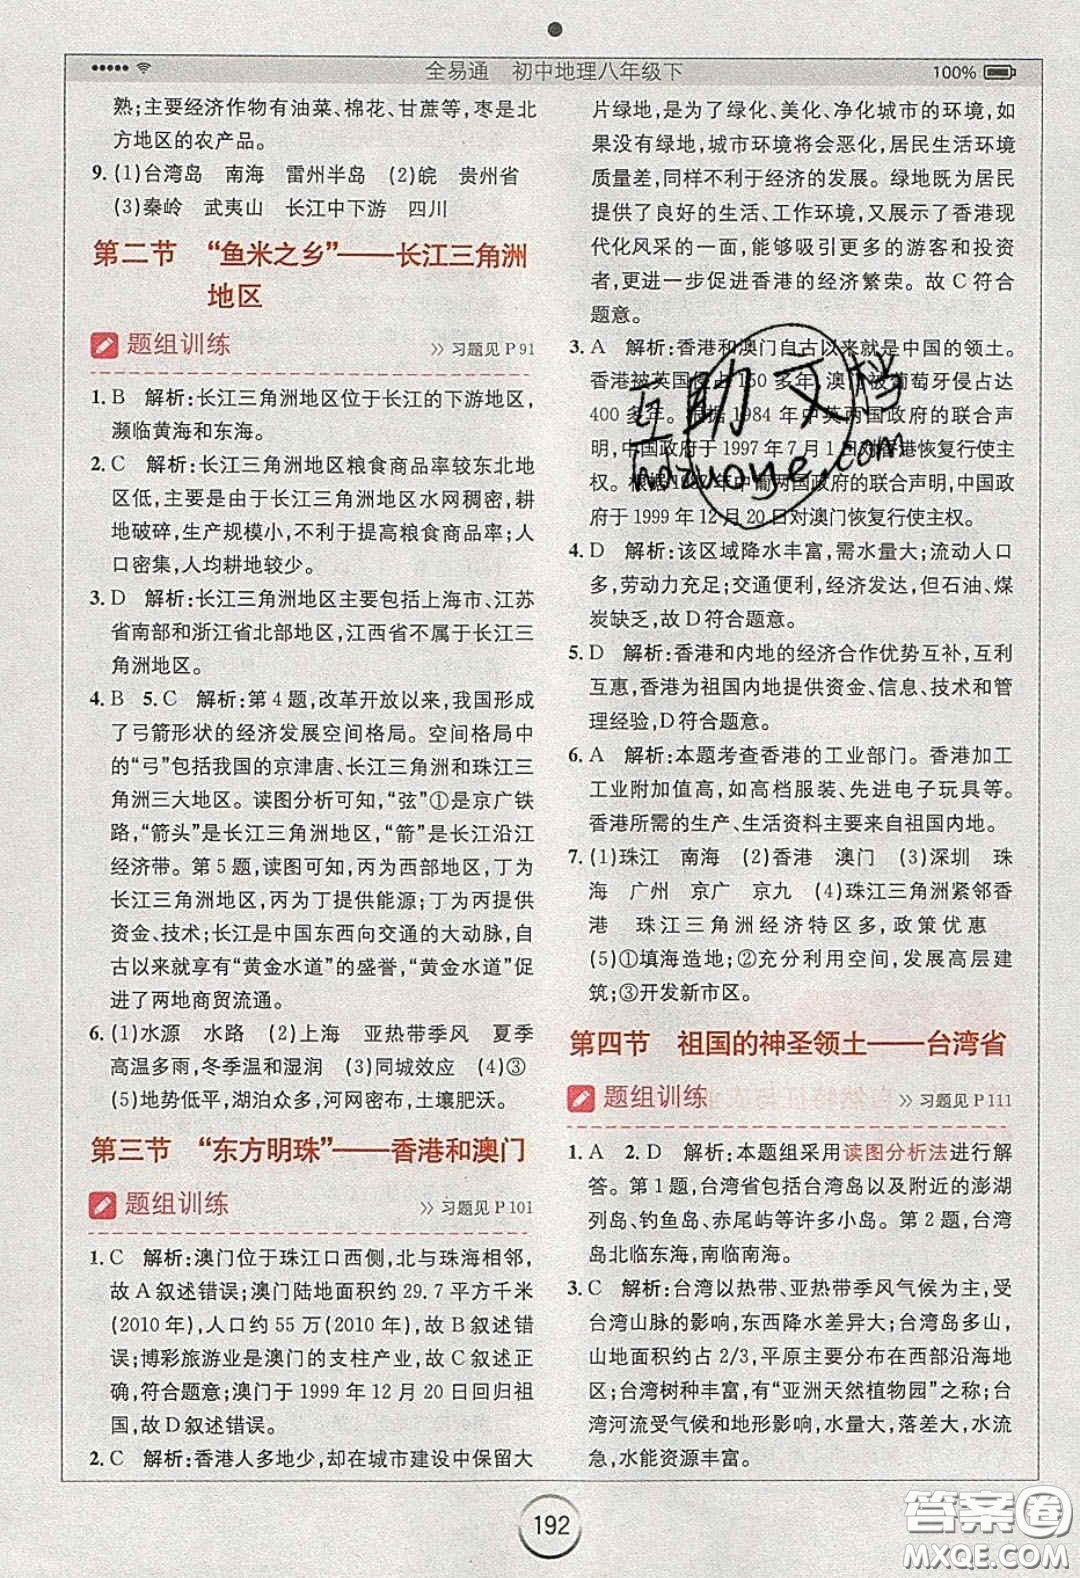 全易通 初中地理八年级下
100%
熟;主要经济作物有油菜、棉花、甘蔗等,枣是北
方地区的农产品。
9. (1)台湾岛 南海 雷州半岛 (2)皖 贵州省
(3)秦岭 武夷山 长江中下游 四川
第二节 “鱼米之乡”——长江三角洲
地区
题组训练
>> 习题见 P 91
1. B 解析:长江三角洲地区位于长江的下游地区,
濒临黄海和东海。
2. C 解析:长江三角洲地区粮食商品率较东北地
区低,主要是由于长江三角洲地区水网稠密,耕
地破碎,生产规模小,不利于提高粮食商品率;人
口密集,人均耕地较少。
3. D 解析:长江三角洲地区主要包括上海市、江苏
省南部和浙江省北部地区,江西省不属于长江三
角洲地区。
4. B 5. C 解析:第 4 题,改革开放以来,我国形成
了弓箭形状的经济发展空间格局。空间格局中
的“弓”包括我国的京津唐、长江三角洲和珠江三
角洲三大地区。读图分析可知,“弦”①是京广铁
路,“箭头”是长江三角洲地区,“箭”是长江沿江
经济带。第 5 题,读图可知,丙为西部地区,丁为
长江三角洲地区,丙为丁提供能源,丁为丙提供
资金、技术;长江是中国东西向交通的大动脉,自
古以来就享有“黄金水道”的盛誉,“黄金水道”促
进了两地商贸流通。
6. (1)水源 水路 (2)上海 亚热带季风 夏季
高温多雨,冬季温和湿润 (3)同城效应 (4)③
(5)地势低平,湖泊众多,河网密布,土壤肥沃。
第三节 “东方明珠”——香港和澳门
题组训练
>> 习题见 P 101
1. C 解析:澳门位于珠江口西侧,北与珠海相邻,
故 A 叙述错误;澳门陆地面积约 29.7 平方千米
(2010 年),人口约 55 万(2010 年),故 B 叙述错
误;博彩旅游业是澳门的支柱产业,故 C 叙述正
确,符合题意;澳门于 1999 年 12 月 20 日回归祖
国,故 D 叙述错误。
2. C 解析:香港人多地少,却在城市建设中保留大
片绿地,是为了绿化、美化、净化城市的环境,如
果没有绿地,城市环境将会恶化,居民生活环境
质量差,同样不利于经济的发展。绿地既为居民
提供了良好的生活、工作环境,又展示了香港现
代化风采的一面,能够吸引更多的游客和投资
者,更进一步促进香港的经济繁荣。故 C 符合
题意。
3. A 解析:香港和澳门自古以来就是中国的领土。
香港被英国侵占 150 多年,澳门被葡萄牙侵占达
400 多年。根据 1984 年中英两国政府的联合声
明,中国政府于 1997 年 7 月 1 日对香港恢复行使主
权。根据 1987 年中葡两国政府的联合声明,中国政
府于 1999 年 12 月 20 日对澳门恢复行使主权。
4. D 解析:该区域降水丰富,需水量大;流动人口
多,劳动力充足;交通便利,经济发达,但石油、煤
炭缺乏,故 D 符合题意。
5. D 解析:香港和内地的经济合作优势互补,互利
互惠,香港为祖国内地提供资金、信息、技术和管
理经验,D 符合题意。
6. A 解析:本题考查香港的工业部门。香港加工
工业附加值高,如高档服装、先进电子玩具等。
香港所需的生产、生活资料主要来自祖国内地。
7. (1)珠江 南海 (2)香港 澳门 (3)深圳 珠
海 广州 京广 京九 (4)珠江三角洲紧邻香
港 珠江三角洲经济特区多,政策优惠
(5)①填海造地;②充分利用空间,发展高层建
筑;③开发新市区。
第四节 祖国的神圣领土——台湾省
题组训练
>> 习题见 P 111
1. A 2. D 解析:本题组采用读图分析法进行解
答。第 1 题,台湾省包括台湾岛以及附近的澎湖
列岛、钓鱼岛、赤尾屿等许多小岛。第 2 题,台湾
岛北临东海,南临南海。
3. C 解析:台湾以热带、亚热带季风气候为主,受
台湾山脉的影响,东西降水差异大;台湾岛多山,
山地面积约占 2/3,平原主要分布在西部沿海地
区;台湾树种丰富,有“亚洲天然植物园”之称;台
湾河流受气候和地形影响,水量大,落差大,水流
急,水能资源丰富。
互助文档
hdzuoye.com
192
答案圈
MXQE.COM